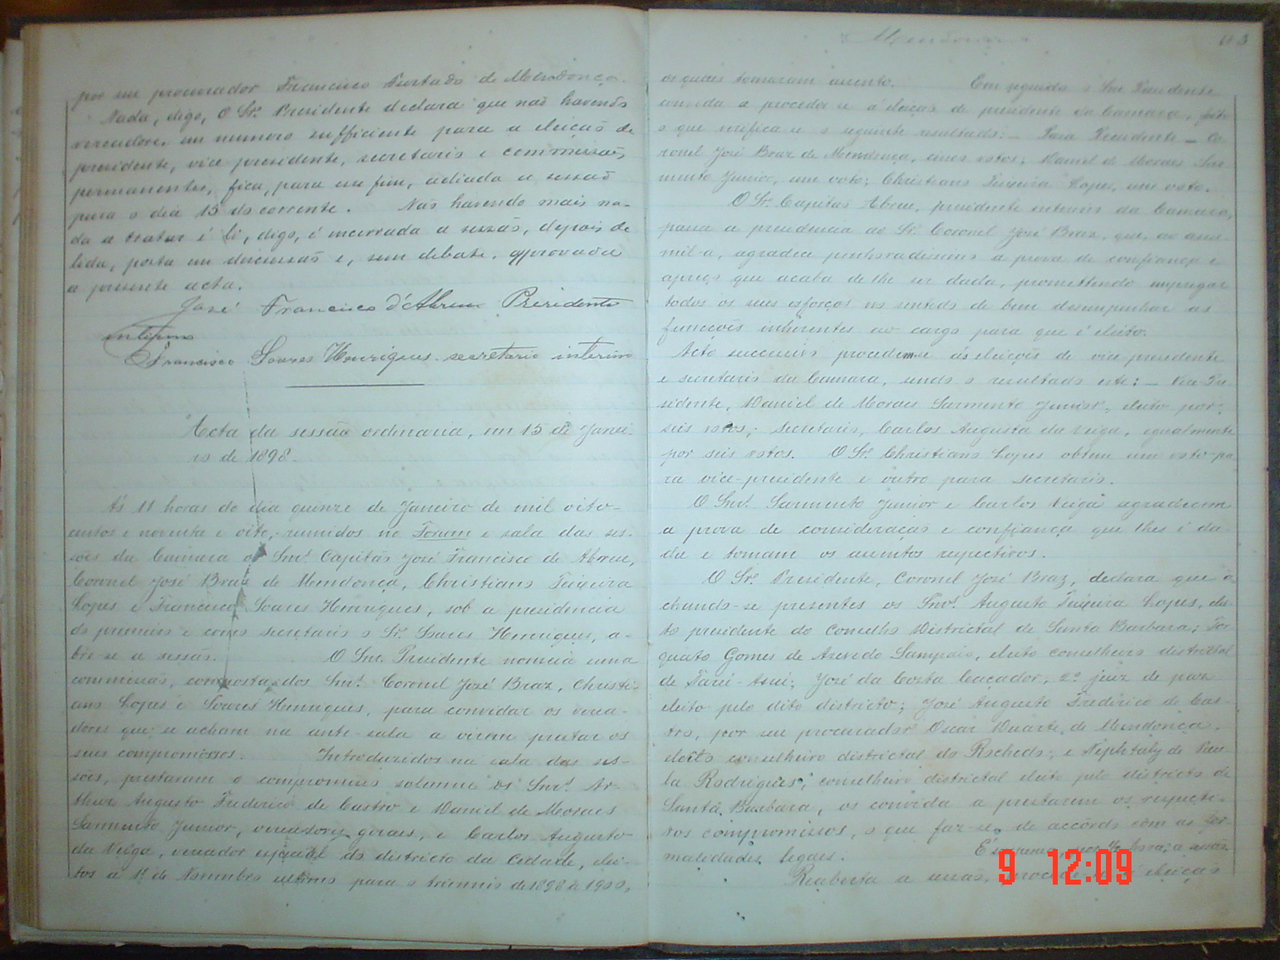 por seu procurador Francisco Furtado de Mendonça.
Nada, digo, O Sr. Presidente declara que não havendo
vereadores em numero sufficiente para a eleição de
presidente, vice-presidente, secretario e commissões
permanentes, fica, para esse fim, adiada a sessão
para o dia 15 do corrente. Não havendo mais na-
da a tratar é li, digo, é encerrada a sessão, depois de
lida, posta em discussão e, sem debate, approvada
a presente acta.
José Francisco d'Abreu Presidente
interino
Francisco Soares Henriques secretario interino
Acta da sessão ordinaria, em 15 de Janei-
ro de 1898.
Ás 11 horas do dia quinze de Janeiro de mil oito-
centos e noventa e oito, reunidos no Forum e sala das ses-
sões da Camara os Snrs. Capitão José Francisco de Abreu,
Coronel José Braz de Mendonça, Christiano Teixeira
Lopes e Francisco Soares Henriques, sob a presidencia
do primeiro e como secretario o Sr. Soares Henriques, a-
bre-se a sessão. O Snr. Presidente nomeia uma
commissão, composta dos Snrs. Coronel José Braz, Christi-
ano Lopes e Soares Henriques, para convidar os verea-
dores que se acham na ante-sala a virem prestar os
seus compromissos. Introduzidos na sala das ses-
sões, prestaram o compromisso solemne os Snrs. Ar-
thur Augusto Frederico de Castro e Daniel de Moraes
Sarmento Junior, vereadores geraes, e Carlos Augusto
da Veiga, vereador especial do districto da Cidade, elei-
tos a 1º de Novembro ultimo para o triennio de 1898 a 1900,
os quaes tomaram assento. Em seguida o Snr. Presidente
convida a proceder-se á eleição de presidente da Camara, feito
o que verifica-se o seguinte resultado: — Para Presidente — Co-
ronel José Braz de Mendonça, cinco votos; Daniel de Moraes Sar-
mento Junior, um voto; Christiano Teixeira Lopes, um voto.
O Sr. Capitão Abreu, presidente interino da Camara,
passa a presidencia ao Sr. Coronel José Braz, que, ao assu-
mil-a, agradece penhoradissimo a prova de confiança e
apreço que acaba de lhe ser dada, promettendo empregar
todos os seus esforços no sentido de bem desempenhar as
funcções inherentes ao cargo para que é eleito.
Acto successivo procedem-se ás eleições de vice-presidente
e secretario da Camara, sendo o resultado este: — Vice-Pre-
sidente, Daniel de Moraes Sarmento Junior, eleito por
seis votos; Secretario, Carlos Augusto da Veiga, igualmente
por seis votos. O Sr. Christiano Lopes obteve um voto pa-
ra vice-presidente e outro para secretario.
O Snrs. Sarmento Junior e Carlos Veiga agradecem
a prova de consideração e confiança que lhes é da-
da e tomam os assentos respectivos.
O Sr. Presidente, Coronel José Braz, declara que a-
chando-se presentes os Snrs. Augusto Teixeira Lopes, elei-
to presidente do Conselho Districtal de Santa Barbara; Tor-
quato Gomes de Azevedo Sampaio, eleito conselheiro districtal
de Taru-Assú; José da Costa Caçador, 2º juiz de paz
eleito pelo dito districto; José Augusto Frederico de Cas-
tro, por seu procurador Oscar Duarte de Mendonça,
eleito conselheiro districtal do Rochedo; e Nephtaly de Pau-
la Rodrigues, conselheiro districtal eleito pelo districto de
Santa Barbara, os convida a prestarem os respecti-
vos compromissos, o que faz-se de accôrdo com as for-
malidades legaes. hora a sessão.
Reaberta a sessão, eleição
9 12:09